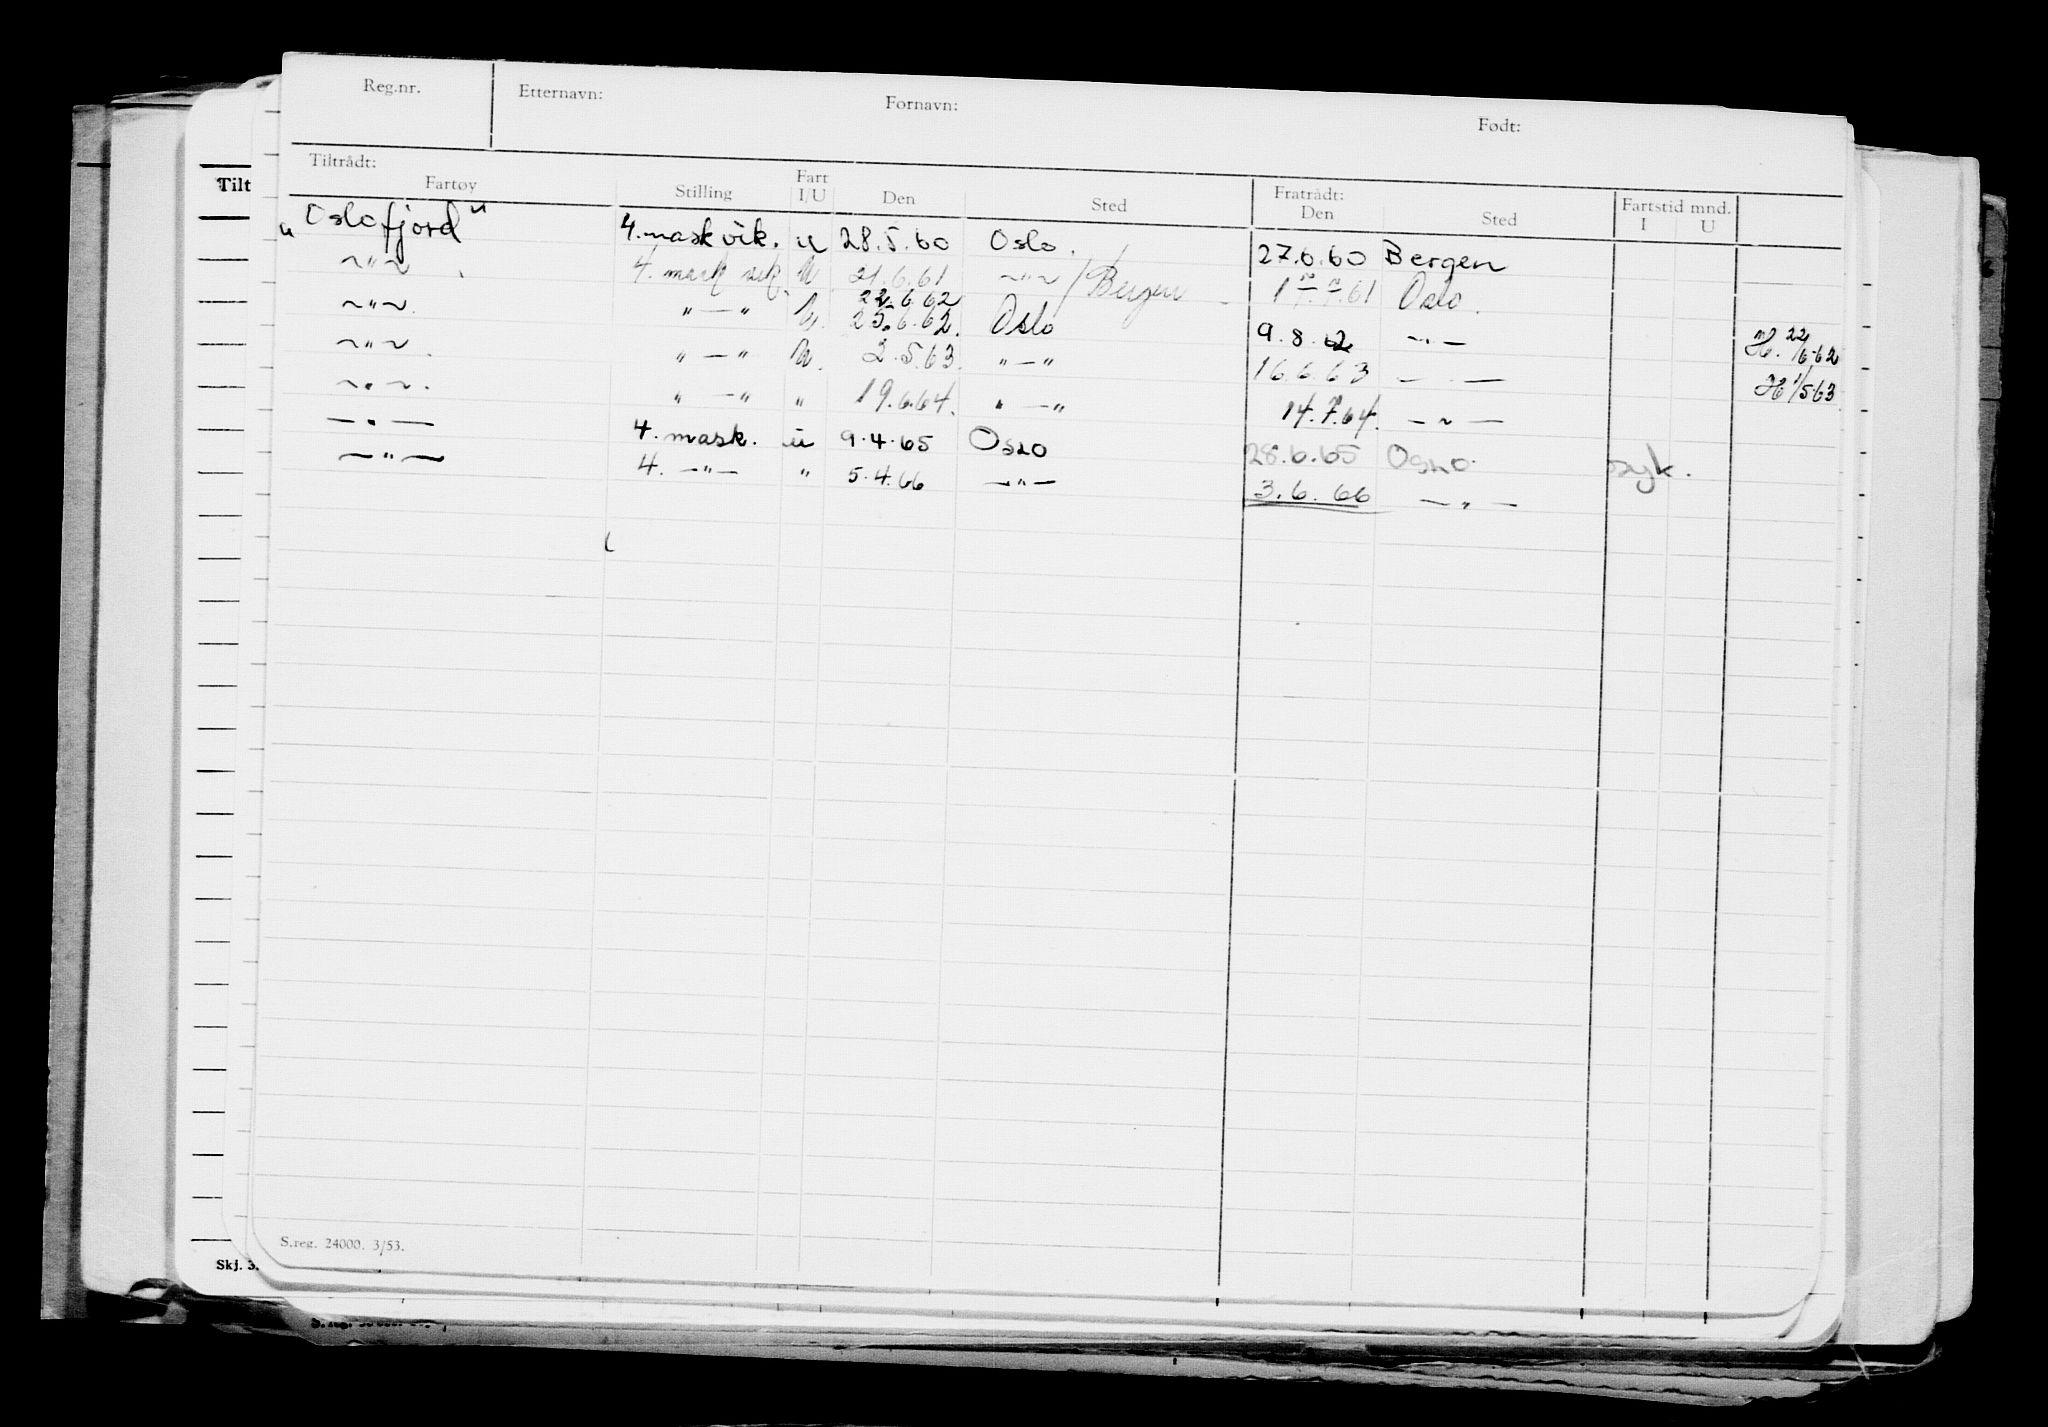 Reg.nr. Etternavn: Fornavn: Født:
Tiltrådt: Fratrådt: Fartstid mnd.
Fartøy Stilling Fart I/U Den Sted Den Sted I U
"Oslofjord" 4.mask vik. u 28.5.60 Oslo. 27.6.60 Bergen
~"~ 4. mask vik. U 21.6.61 ~"~/Bergen 17.7.61 Oslo.
22.6.62
~"~. "—" U. 25.6.62. Oslo 9.8.62 —"— 22/6-62
~"~. "—" U. 2.5.63. "—" 16.6.63 — — 1/5.63
~"~. "—" " 19.6.64. "—" 14.7.64. —"—
—"— 4. mask. u 9.4.65 Oslo 28.6.65 Oslo. syk.
—"— 4. —"— " 5.4.66 —"— 3.6.66 —"—
S.reg. 24000. 3/53.
Tilt
Skj. 3.